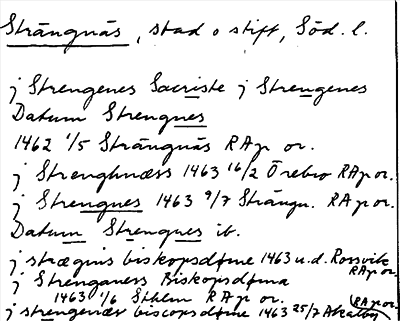 Strängnäs, stad o stift, Söd. l.
j Strengenes Sacriste j Strengenes
Datum Strengnes
1462 1/5 Strängnäs RAp or.
j Strenghnæss 1463 16/2 Örebro RAp or.
j Strengnes 1463 9/7 Strängn. RAp or.
Datum Strengnes ib.
j strægnis biskopsdøme 1463 u.d. Rossvik RAp or.
j Strenganess Biskopsdøma
1463 1/6 Sthlm RAp or.
j strengenær biscopsdøme 1463 25/7 RAp or.